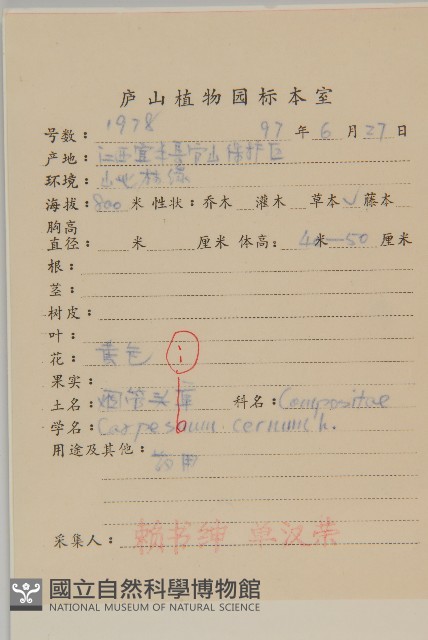 庐山植物园标本室
号数：1978 97年6月27日
产地：江西宜丰官山保护区
环境：山地林缘
海拔：800 米 性状：乔木 灌木 草本✓ 藤本
胸高
直径： 米 厘米 体高： 40米—50 厘米
根：
茎：
树皮：
叶：
花：黄色
果实：
土名：烟管头草 科名：Compositae
学名：Carpesium cernuum L.
用途及其他：药用
采集人：赖书绅 单汉荣
國立自然科學博物館
NATIONAL MUSEUM OF NATURAL SCIENCE